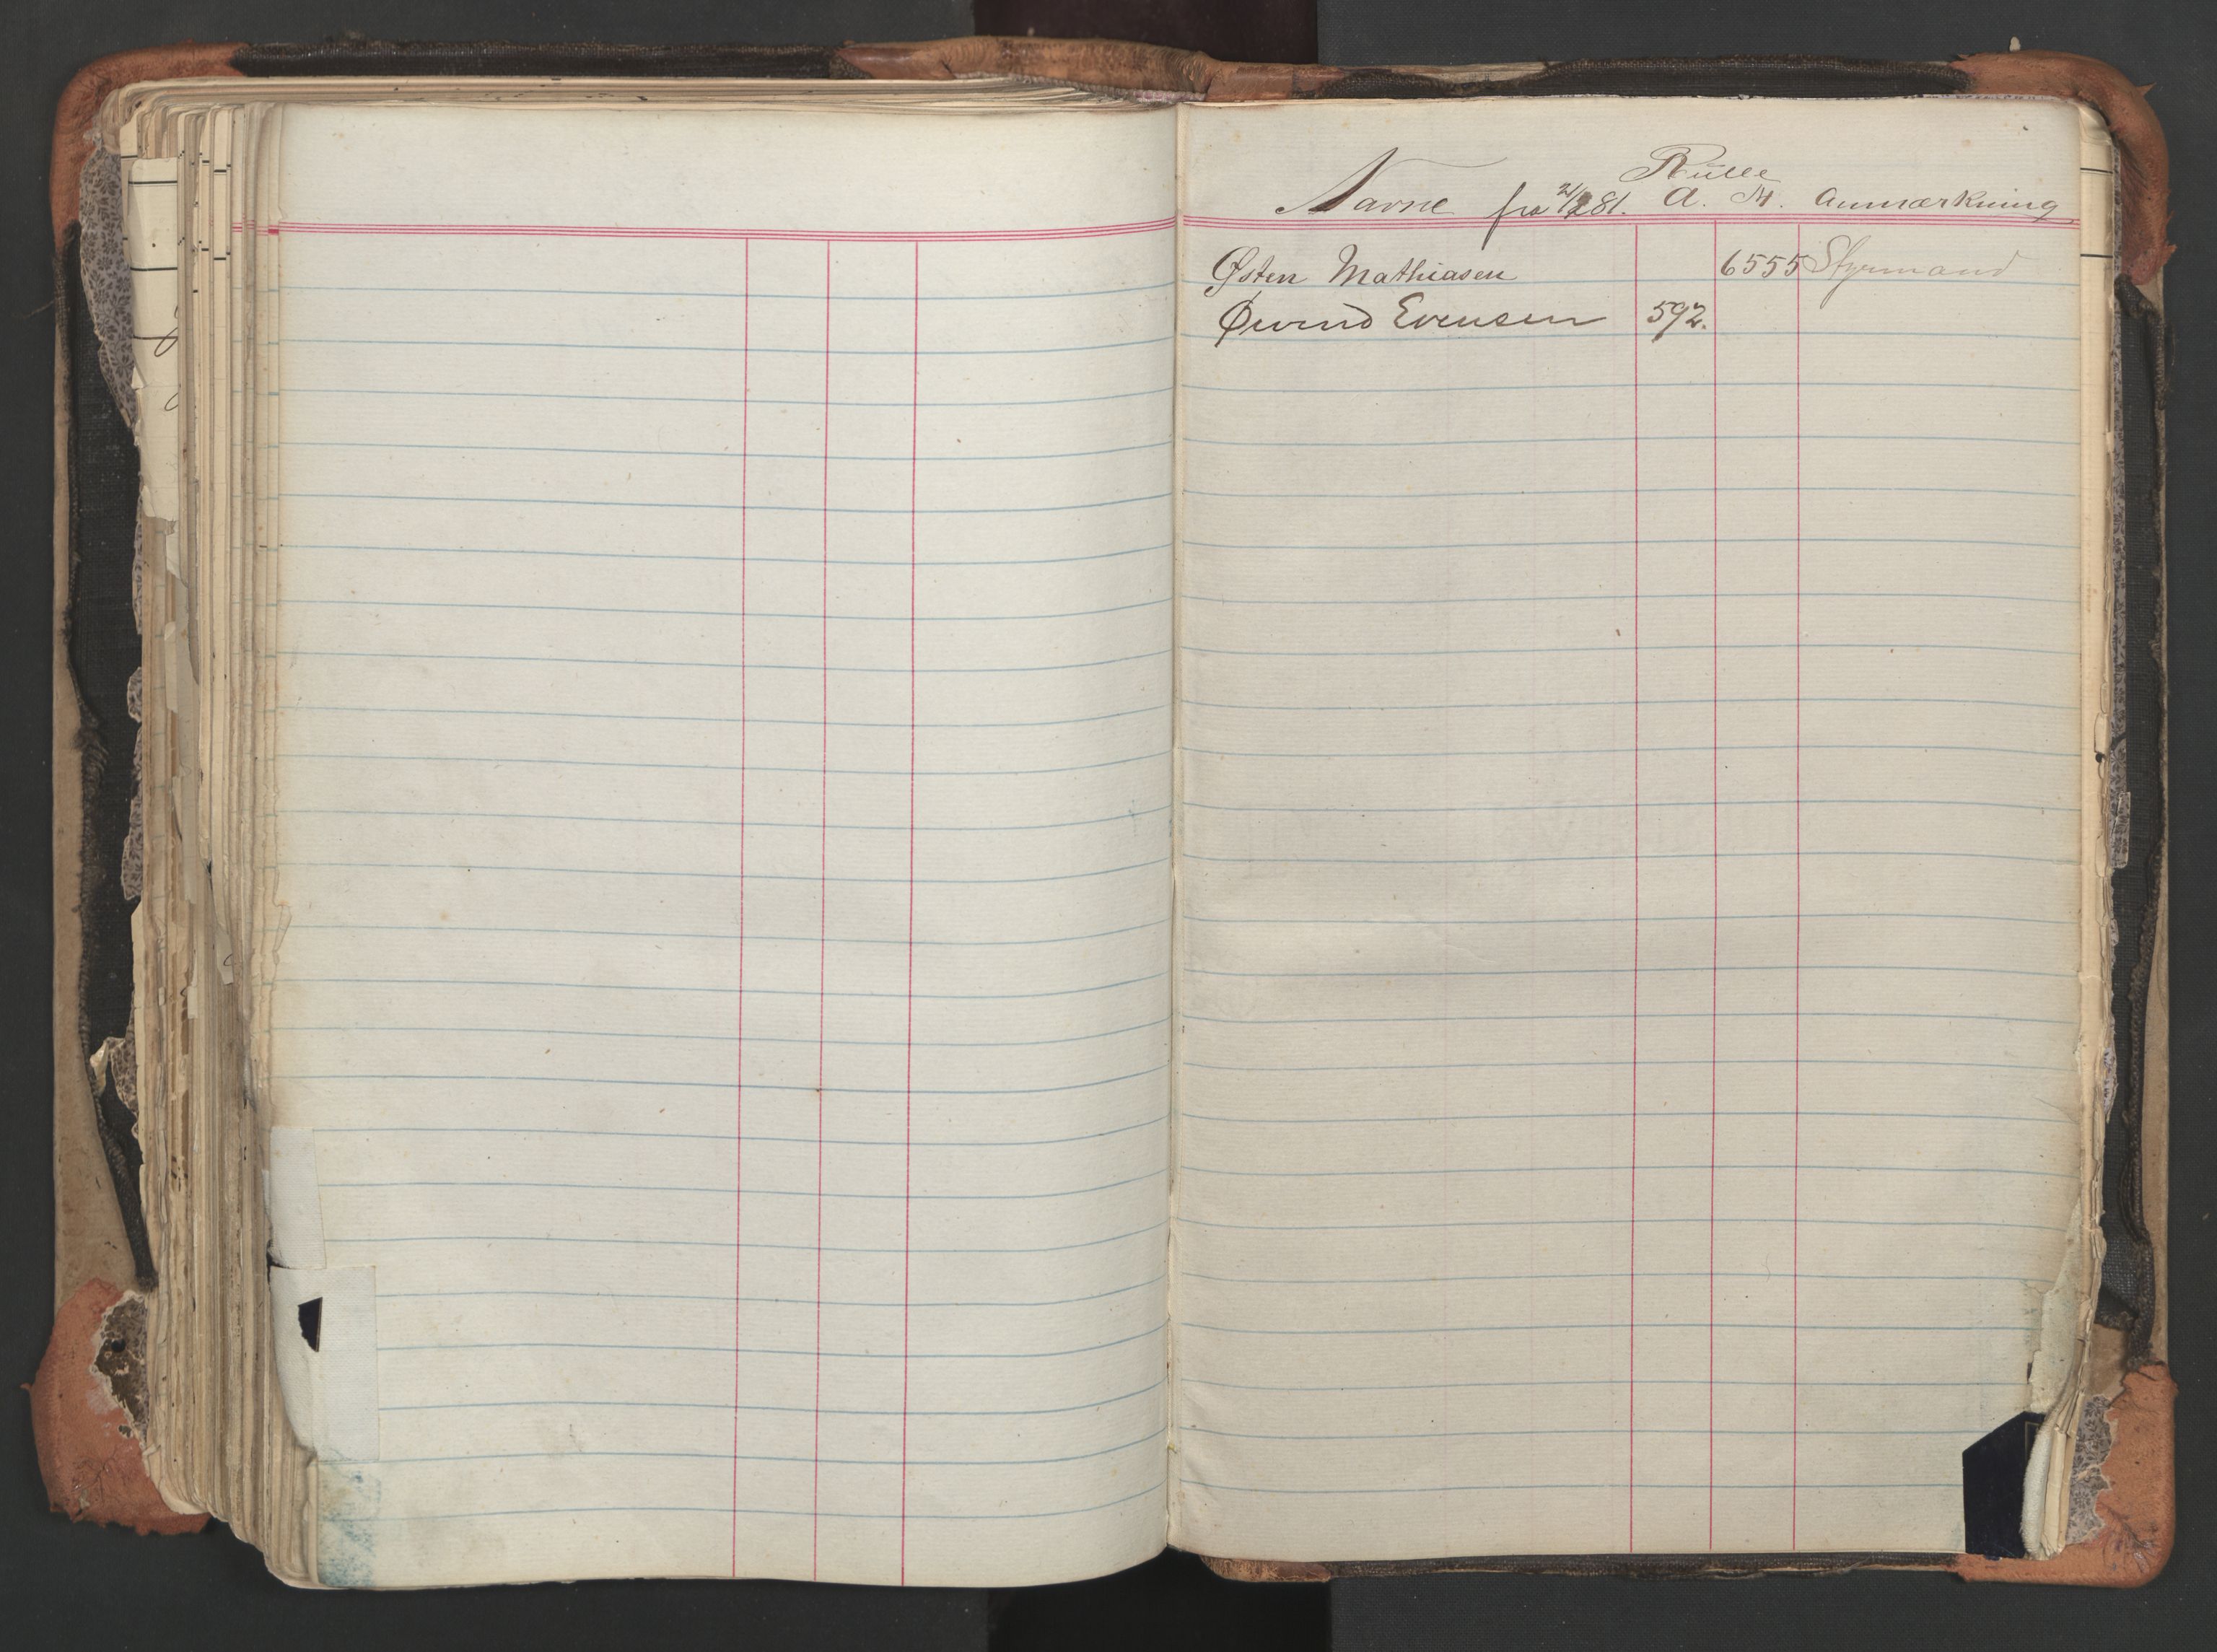 Rulle
Navne fra 21/2 81. A. M. Anmærkning
Østen Mathiasen 6555 Styrmand
Øivind Evensen 592.